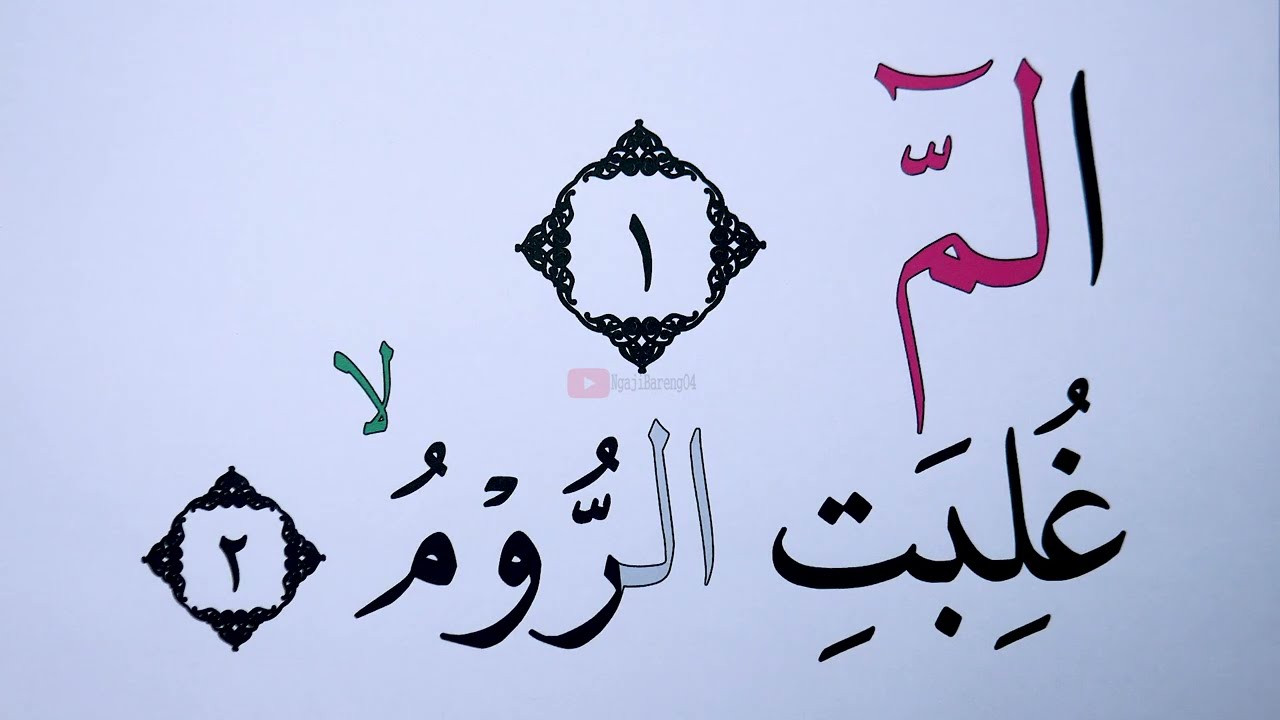 الٓمّٓ ١
غُلِبَتِ الرُّوْمُ ۙ ٢
NgajiBareng04